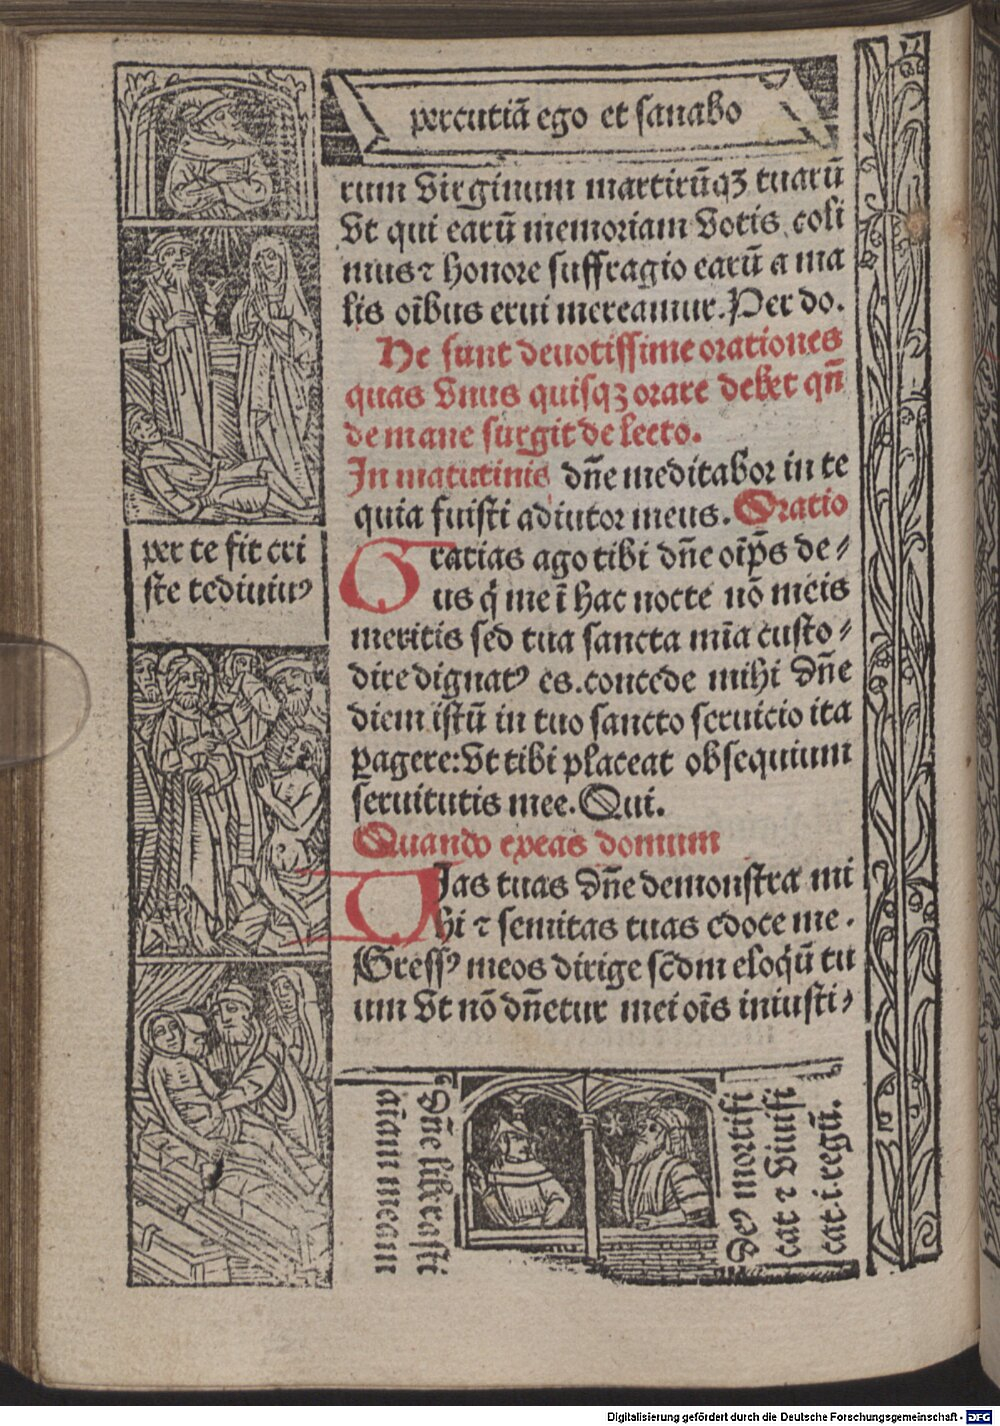 percutiā ego et sanabo
rum Virginum martirūqꝫ tuarū
Vt qui earū memoriam Votis coli
mus ⁊ honore suffragio earū a ma
lis oībus erui mereamur. Per do.
He sunt deuotissime orationes
quas Vnus quisqꝫ orare debet qn̄
de mane surgit de lecto.
In matutinis dn̄e meditabor in te
quia fuisti adiutor meus. Oratio
Gratias ago tibi dn̄e oīp̄s de⸗
us q̄ me ī hac nocte nō meis
meritis sed tua sancta mīa custo⸗
dire dignatꝰ es. concede mihi dn̄e
diem istū in tuo sancto seruicio ita
ꝑagere: Vt tibi placeat obsequium
seruitutis mee. Qui.
Quando exeas domum
Vias tuas dn̄e demonstra mi
hi ⁊ semitas tuas edoce me.
Gressꝰ meos dirige scd̄m eloqū tu
um Vt nō dn̄etur mei oīs iniusti⸗
per te fit cri
ste rediuiuꝰ
Dn̄e liberasti
aīam meam
Dꝰ mortifi
cat ⁊ Viuifi
cat. i. regū.
Digitalisierung gefördert durch die Deutsche Forschungsgemeinschaft - DFG